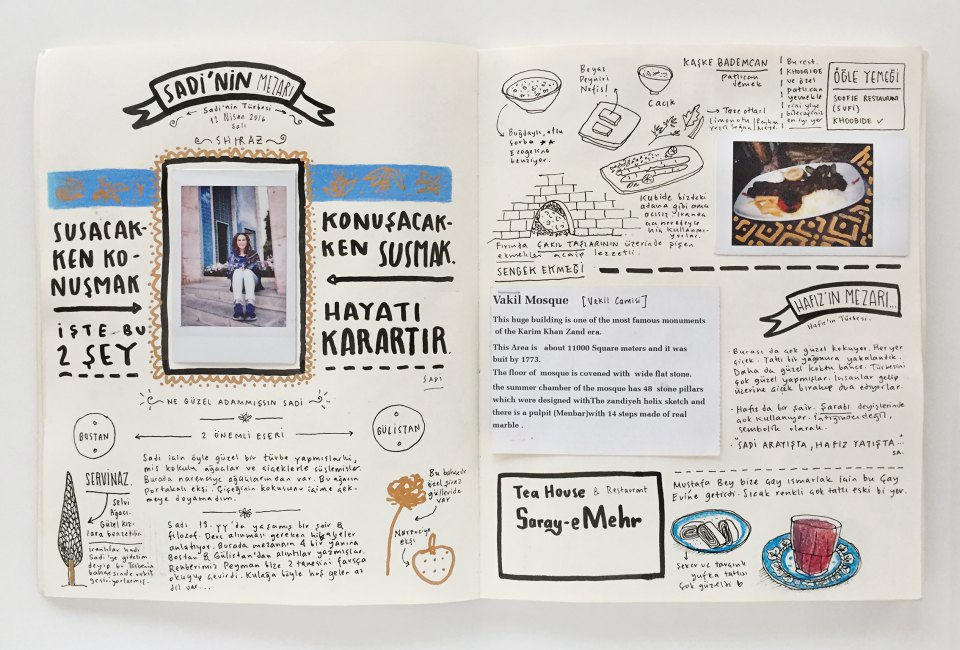 SADİ'NİN MEZARI
Sadi'nin Türbesi
12 Nisan 2016
Salı
SHIRAZ
SUSACAK-
KEN KO-
NUŞMAK
İŞTE BU
2 ŞEY
KONUŞACAK-
KEN SUSMAK.
HAYATI
KARARTIR.
SADİ
NE GÜZEL ADAMMIŞSIN SADİ
BOSTAN
2 ÖNEMLİ ESERİ
GÜLİSTAN
Sadi için öyle güzel bir türbe yapmışlarki,
mis kokulu ağaçlar ve çiçeklerle süslemişler.
Burada narenciye ağaçlarından var. Bu ağacın
Portakalı ekşi. Çiçeğinin kokusunu içime çek-
meye doyamadım.
SERVİNAZ.
Selvi
Ağacı.
Güzel kız-
lara benzetilir.
Sadi'ye gidelim
deyip bu Türbenin
Sadi 13.yy'da yaşamış bir şair &
filozof. Ders alınması gereken hikayeler
anlatıyor. Burada mezarının 4 bir yanına
Bostan & Gülistan'dan alıntılar yazmışlar.
Rehberimiz Peyman bize 2 tanesini farsça
okuyup çevirdi. Kulağa böyle hoş gelen az
dil var...
Bu bahçede
özel şiraz
gülleride
var
Narenciye
ekşi
Beyaz
Peyniri
Nefis!
Cacık
Buğdaylı, otlu
çorba
Ezogeline
benziyor.
KAŞKE BADEMCAN
patlıcan
demek
Taze otları
Limon otu
Yeşil Soğan
Bu rest.
KHOOBIDE
ve özel
patlıcan
yemekle
rini yiye
bileceğiniz
en iyi yer
ÖĞLE YEMEĞİ
SOOFIE RESTAURANT
(SUFİ)
KHOOBIDE ✓
Kubide bizdeki
adana gibi ama
acısız. İranda
acı neredeyse
hiç kullanmı-
yorlar.
Fırında ÇAKIL TAŞLARININ üzerinde pişen
ekmekleri acaip lezzetli.
SENGEK EKMEĞİ
Vakil Mosque [Vakil Camisi]
This huge building is one of the most famous monuments
of the Karim Khan Zand era.
This Area is about 11000 Square meters and it was
buit by 1773.
The floor of mosque is covened with wide flat stone.
the summer chamber of the mosque has 48 stone pillars
which were designed withThe zandiyeh helix sketch and
there is a pulpit (Menbar)with 14 steps made of real
marble .
HAFIZ'IN MEZARI...
Hafız'ın Türbesi.
Burası da çok güzel kokuyor. Her yer
çiçek. Tatlı bir yağmura yakalandık.
Daha da güzel koktu bahçe. Türbesini
çok güzel yapmışlar. İnsanlar gelip
üzerine çiçek bırakıp dua ediyorlar.
· Hafız da bir şair. Şarabı deyişlerinde
çok kullanıyor. İçtiğinden değil,
sembolik olarak.
· "SADİ ARAYIŞTA, HAFIZ YATIŞTA..."
SA.
Tea House & Restaurant
Saray-e Mehr
Mustafa Bey bize çay ısmarlak için bu Çay
Evine getirdi. Sıcak renkli çok tatlı eski bi yer.
Şeker ve tarçınlı
yufka tatlısı
çok güzeldi